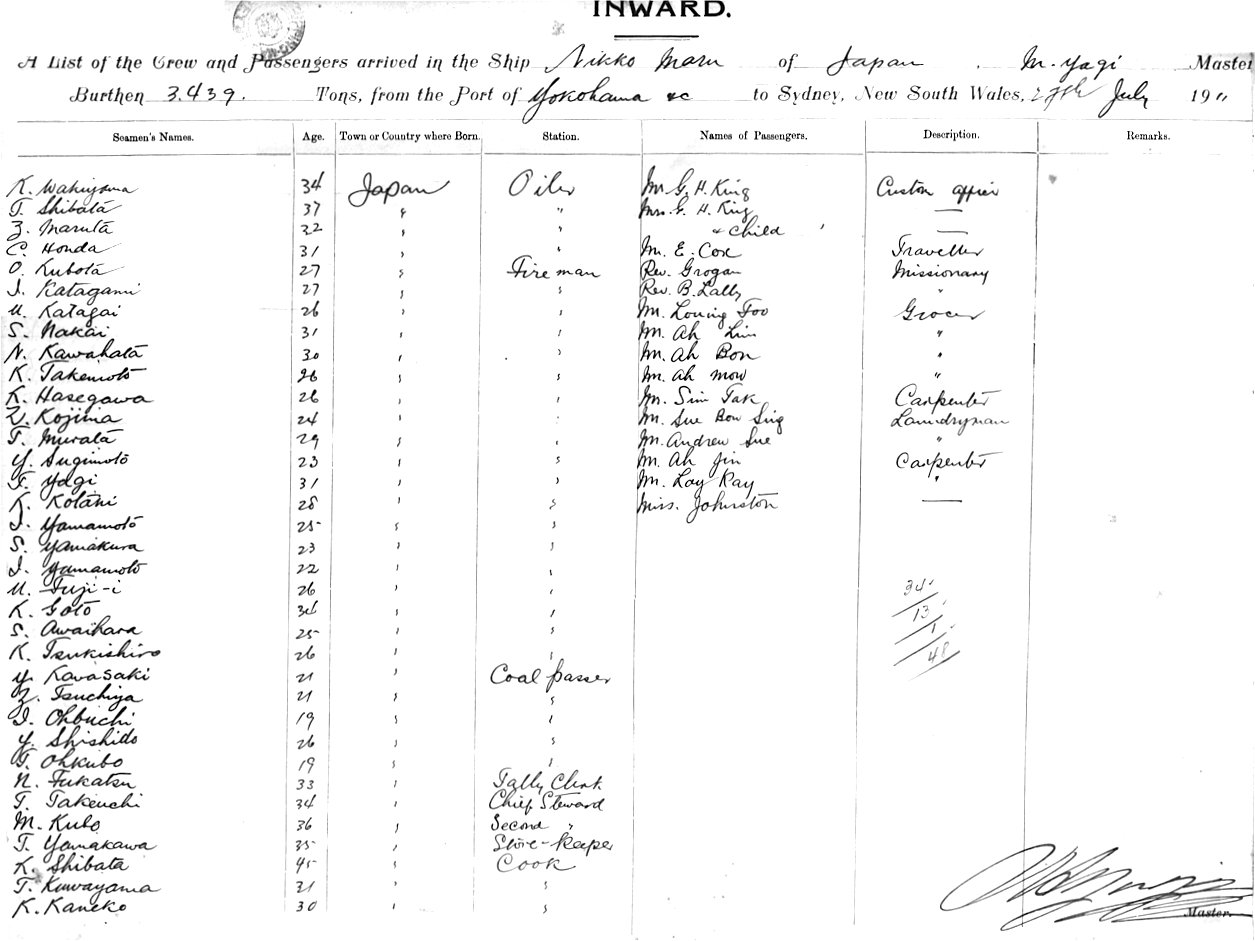 INWARD.
A List of the Crew and Passengers arrived in the Ship Nikko Maru of Japan, M. Yagi Master
Burthen 3.439. Tons, from the Port of Yokohama &c to Sydney, New South Wales, July 1911
Seamen's Names. Age. Town or Country where Born. Station. Names of Passengers. Description. Remarks.
K. Wakiyama 34 Japan Oiler Mr. G. H. King Custom officer
T. Shibata 37 " " Mrs. G. H. King —
Z. Maruta 32 " " & Child —
C. Honda 31 " " Mr. E. Cox Traveller
O. Kubota 27 " Fireman Rev. Grogan Missionary
I. Katagami 27 " " Rev. B. Lally "
U. Katagai 26 " " Mr. Louing Foo Grocer
S. Nakai 31 " " Mr. Ah Lim "
N. Kawahata 30 " " Mr. Ah Bon "
K. Takemoto 26 " " Mr. Ah Mow "
K. Hasegawa 26 " " Mr. Sim Tak Carpenter
Kojima 24 " " Mr. Sue Bow Sing Laundryman
T. Murata 29 " " Mr. Andrew Sue "
Y. Sugimoto 23 " " Mr. Ah Jin Carpenter
T. Yagi 31 " " Mr. Lay Kay "
K. Kotani 28 " " Miss. Johnston —
I. Yamamoto 25 " "
S. Yamakura 23 " "
I. Yamamoto 22 " "
U. Fuji-i 26 " " 34
K. Goto 34 " " 13
S. Awaihara 25 " " 1
K. Tsukishiro 26 " " 48
Y. Kawasaki 21 " Coal passer
Z. Tsuchiya 21 " "
I. Ohbuchi 19 " "
Y. Shishido 26 " "
T. Ohkubo 19 " "
N. Fukatsu 33 " Tally Clerk
T. Takeuchi 34 " Chief Steward
M. Kubo 36 " Second "
T. Yamakawa 35 " Store-keeper
K. Shibata 45 " Cook
T. Kuwayama 31 " "
K. Kaneko 30 " "
Master.